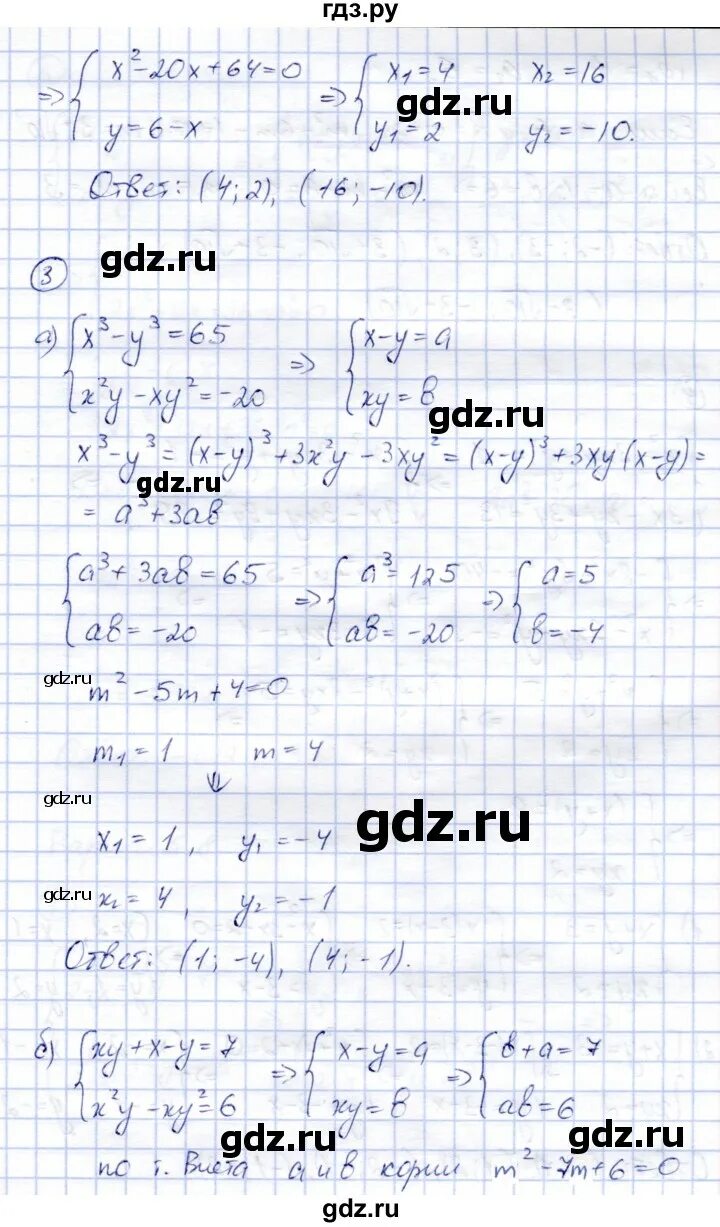 гдз.ру
⇒ { x² - 20x + 64 = 0 ⇒ { x₁ = 4 x₂ = 16
gdz.ru
y = 6 - x y₁ = 2 y₂ = -10.
Ответ: (4; 2), (16; -10).
gdz.ru
3
а) { x³ - y³ = 65 ⇒ { x - y = a
x²y - xy² = -20 xy = b
gdz.ru
x³ - y³ = (x-y)³ + 3x²y - 3xy² = (x-y)³ + 3xy(x-y) =
gdz.ru
= a³ + 3ab
{ a³ + 3ab = 65 ⇒ { a³ = 125 ⇒ { a = 5
ab = -20 ab = -20 b = -4
gdz.ru
m² - 5m + 4 = 0
m₁ = 1 m = 4
⇓
gdz.ru
gdz.ru
x₁ = 1, y₁ = -4
gdz.ru
x₂ = 4, y₂ = -1
Ответ: (1; -4), (4; -1).
б) { xy + x - y = 7 ⇒ { x - y = a ⇒ { b + a = 7
x²y - xy² = 6 xy = b ab = 6
gdz.ru
gdz.ru
по т. Виета a и b корни m² - 7m + 6 = 0
gdz.ru